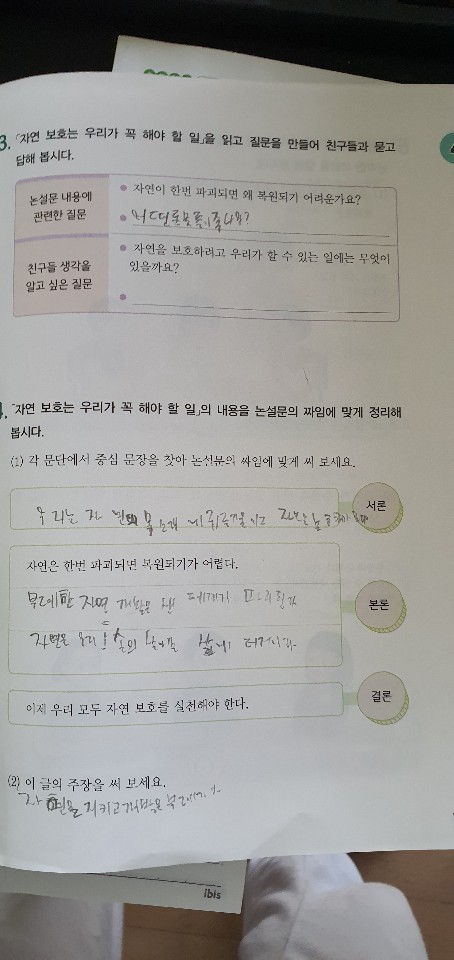 3. 「자연 보호는 우리가 꼭 해야 할 일」을 읽고 질문을 만들어 친구들과 묻고
답해 봅시다.
논설문 내용에
관련한 질문
● 자연이 한번 파괴되면 왜 복원되기 어려운가요?
●
친구들 생각을
알고 싶은 질문
● 자연을 보호하려고 우리가 할 수 있는 일에는 무엇이
있을까요?
●
4. 「자연 보호는 우리가 꼭 해야 할 일」의 내용을 논설문의 짜임에 맞게 정리해
봅시다.
(1) 각 문단에서 중심 문장을 찾아 논설문의 짜임에 맞게 써 보세요.
우리는 자연
서론
자연은 한번 파괴되면 복원되기가 어렵다.
무리한 자연 개발은
본론
자연은 우리
이제 우리 모두 자연 보호를 실천해야 한다.
결론
(2) 이 글의 주장을 써 보세요.
자연을 지키고 개발을
ibis